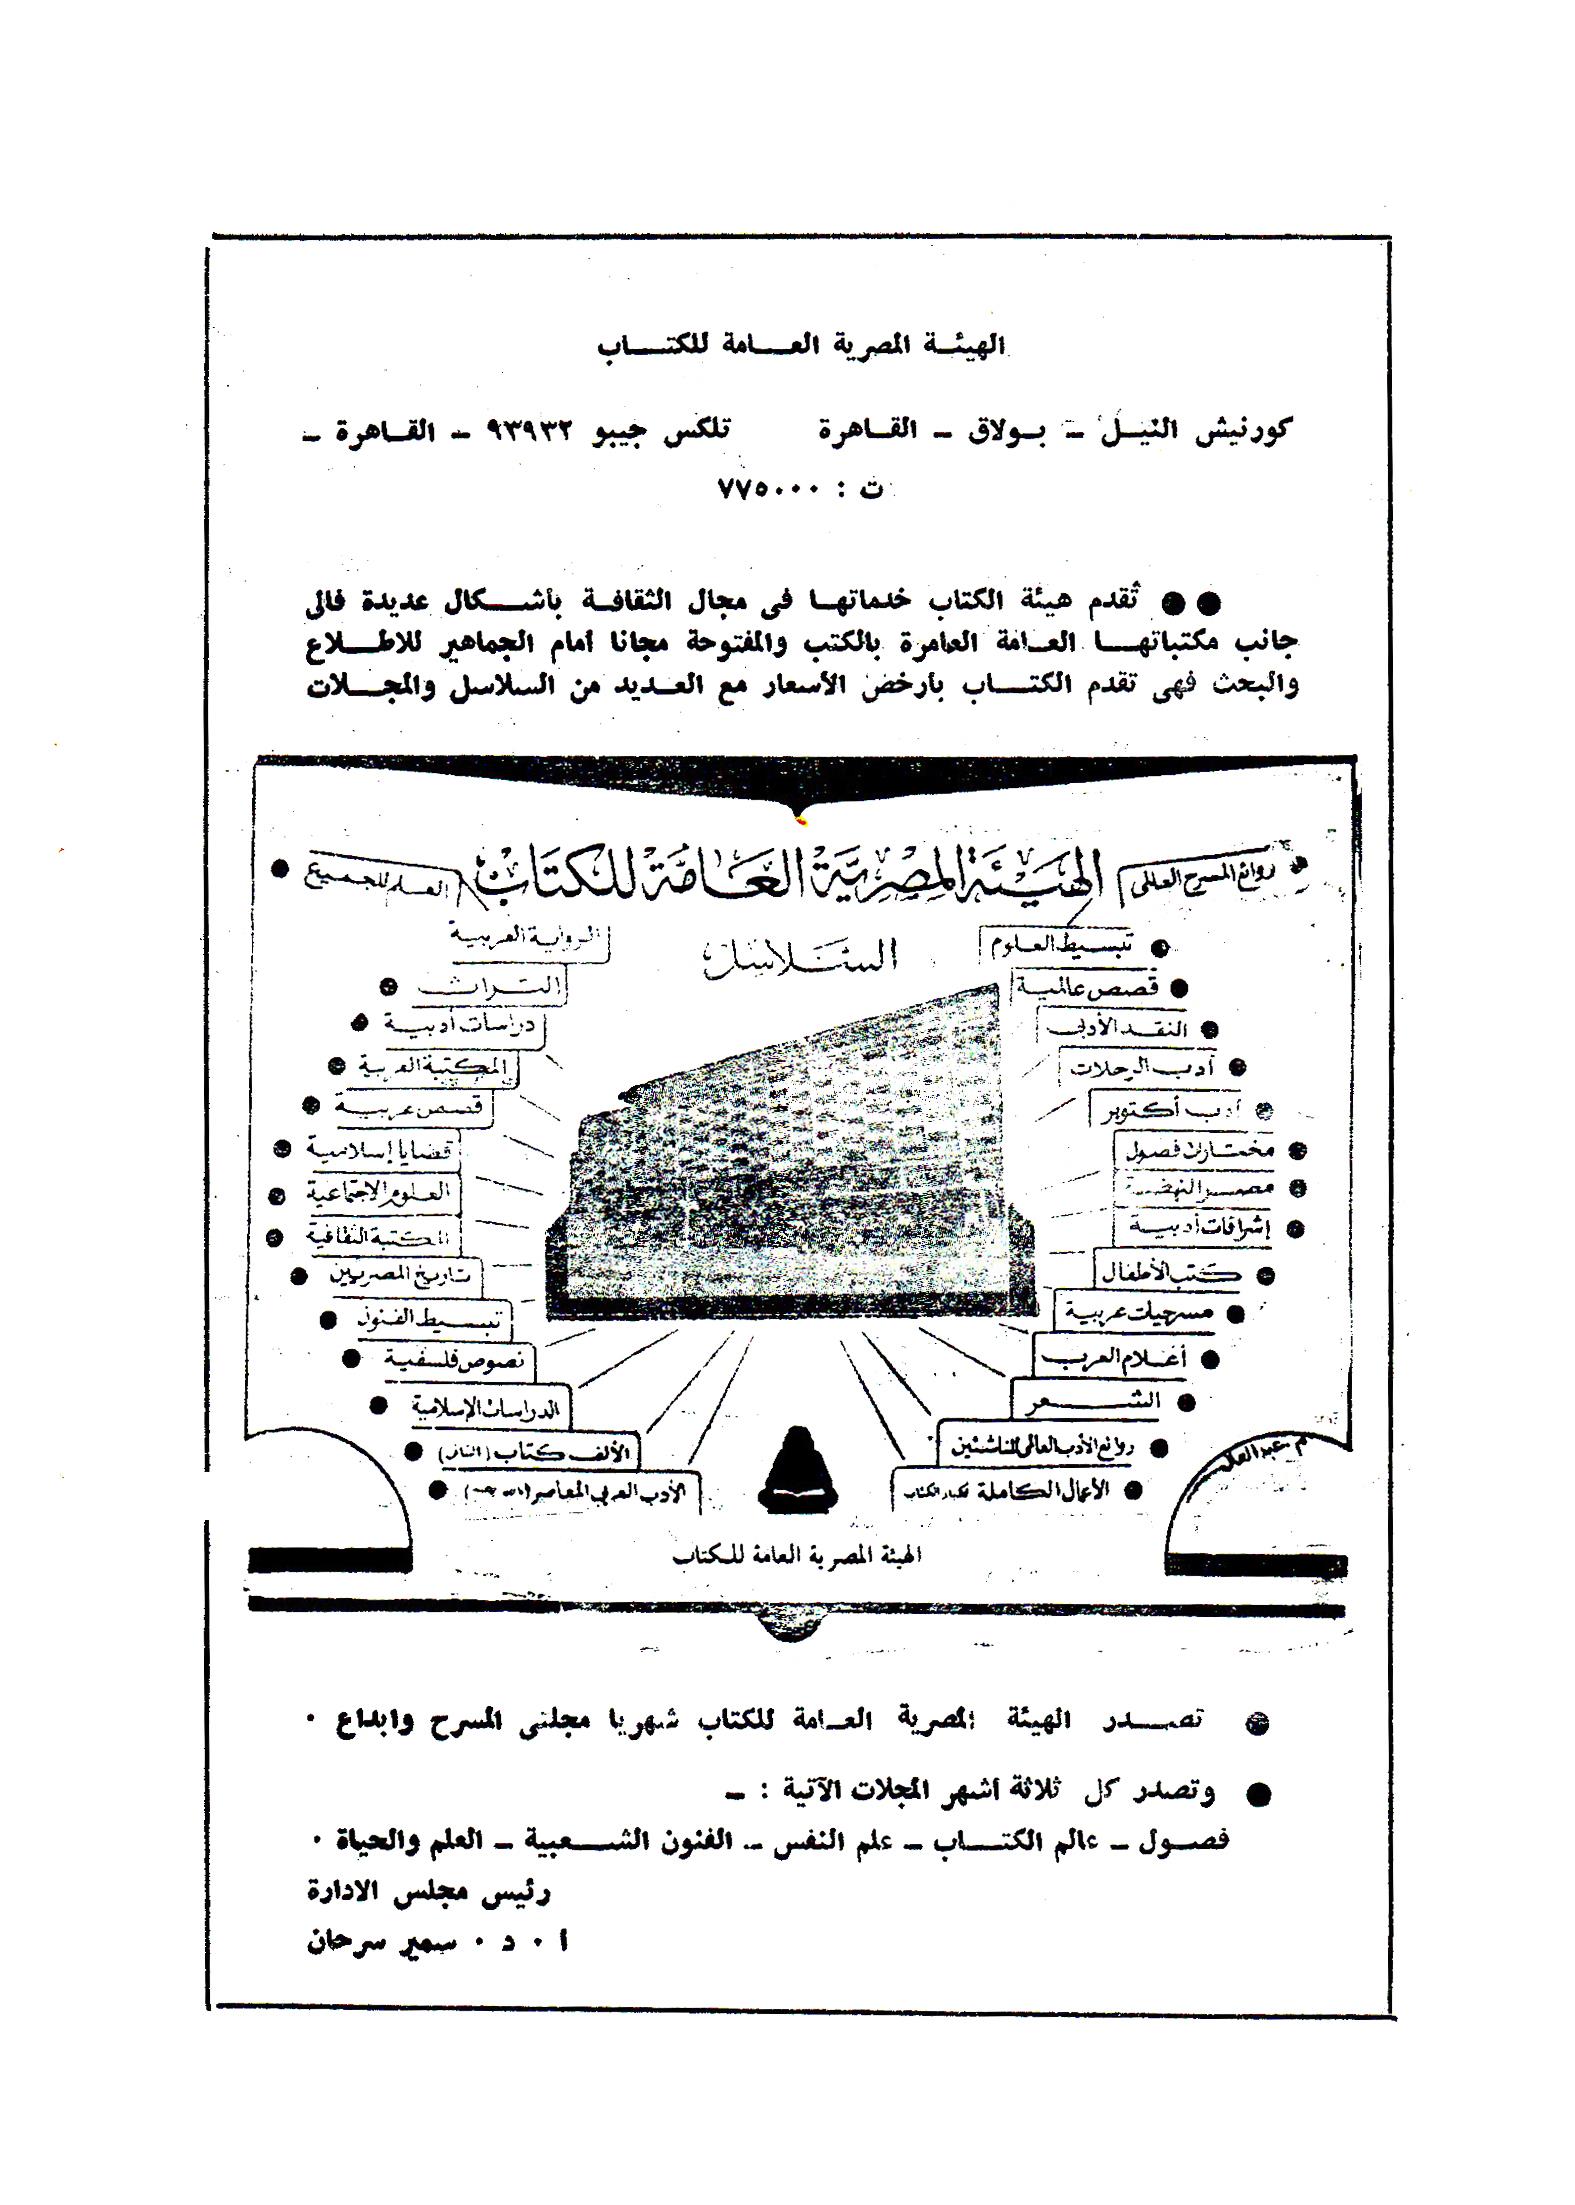 الهيئة المصرية العامة للكتاب
كورنيش النيل – بولاق – القاهرة تلكس جيبو ٩٣٩٣٢ – القاهرة –
ت : ٧٧٥٠٠٠
●● تُقدم هيئة الكتاب خدماتها فى مجال الثقافة بأشكال عديدة فالى
جانب مكتباتها العامة العامرة بالكتب والمفتوحة مجانا أمام الجماهير للاطلاع
والبحث فهى تقدم الكتاب بأرخص الأسعار مع العديد من السلاسل والمجلات
الهيئة المصرية العامة للكتاب
السلاسل
● روائع المسرح العالمى
● تبسيط العلوم
● قصص عالمية
● النقد الأدبى
● أدب الرحلات
● أدب أكتوبر
● مختارات فصول
● مصر النهضة
● إشراقات أدبية
● كتب الأطفال
● مسرحيات عربية
● أعلام العرب
● الشعر
● روائع الأدب العالمى للناشئين
● الأعمال الكاملة لكبار الكتاب
● العلم للجميع
الرواية العربية
● التراث
● دراسات أدبية
● المكتبة العربية
● قصص عربية
● قضايا إسلامية
● العلوم الاجتماعية
● المكتبة الثقافية
● تاريخ المصريين
● تبسيط الفنون
● نصوص فلسفية
● الدراسات الإسلامية
● الألف كتاب (الثانى)
● الأدب العربى المعاصر
الهيئة المصرية العامة للكتاب
● تصدر الهيئة المصرية العامة للكتاب شهريا مجلتى المسرح وابداع ٠
● وتصدر كل ثلاثة أشهر المجلات الآتية : –
فصول – عالم الكتاب – علم النفس – الفنون الشعبية – العلم والحياة ٠
رئيس مجلس الادارة
ا ٠ د ٠ سمير سرحان